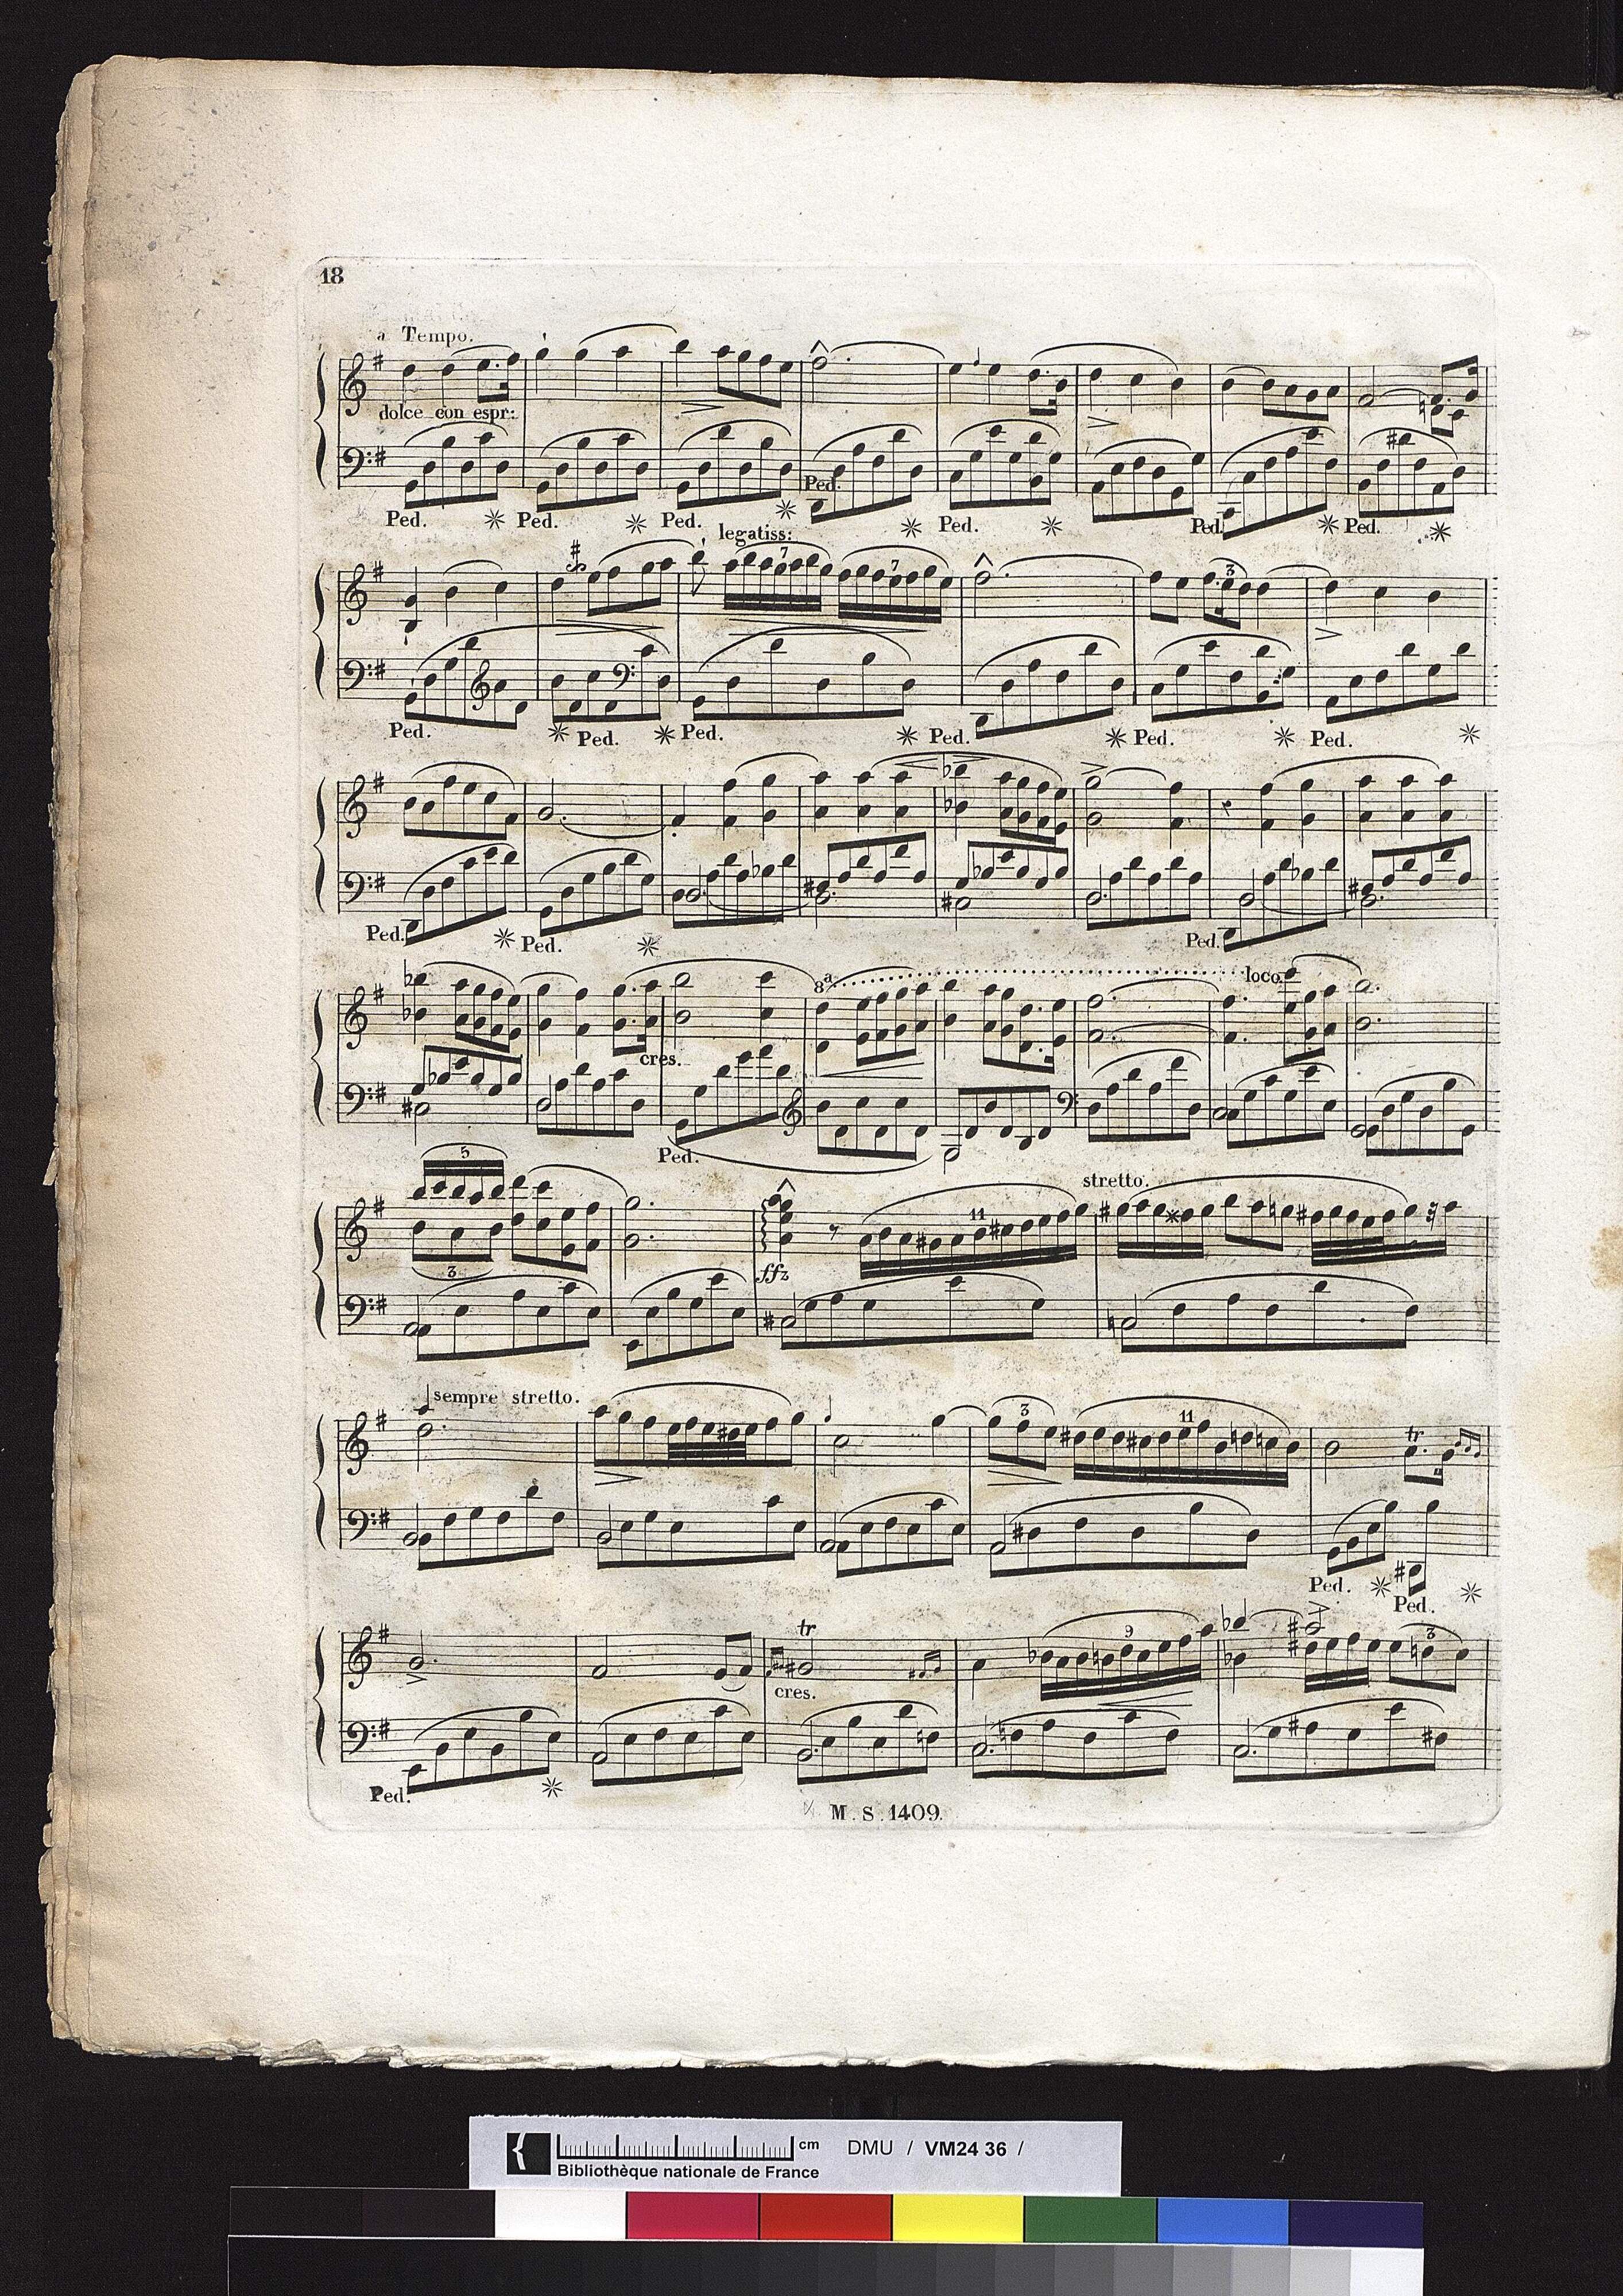 18
a Tempo.
dolce con espr:
Ped.
Ped. ✳ Ped. ✳ Ped. ✳ ✳ Ped. ✳ Ped. ✳ Ped. ✳
legatiss:
7 7 3
Ped. ✳ Ped. ✳ Ped. ✳ Ped. ✳ Ped. ✳ Ped. ✳
Ped. ✳ Ped. ✳ Ped.
8a loco
cres.
Ped.
5 stretto.
11
3 ffz
sempre stretto.
3 11 tr
Ped. ✳ Ped. ✳
tr 9 3
cres.
Ped. ✳
M. S. 1409.
cm DMU / VM24 36 /
Bibliothèque nationale de France